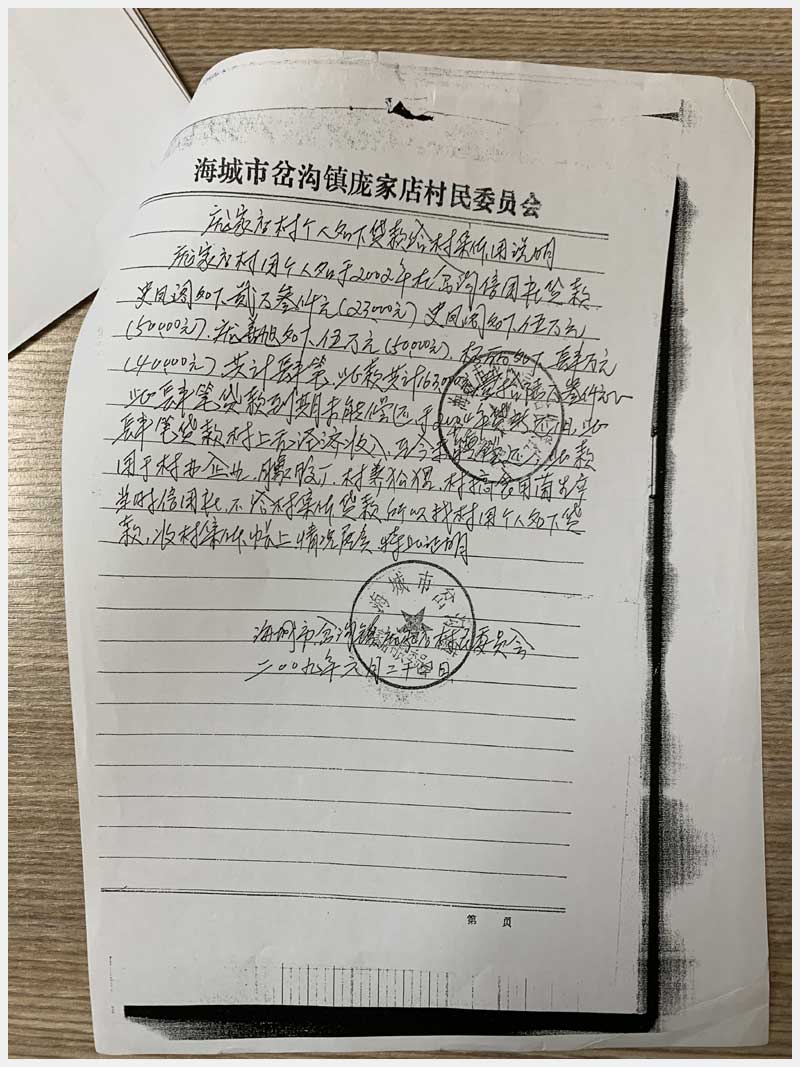 海城市岔沟镇庞家店村民委员会
庞家店村个人名下贷款给村集体用说明
庞家店村用个人名于2002年在岔沟信用社贷款
史凤阁名下贰万叁仟元(23000元) 史凤阁名下伍万元
(50,000元). 庞 名下伍万元(50,000元). 名下肆万元
(40,000元) 共计肆笔, 此款共计163000元 拾陆万叁仟元
此肆笔贷款到期未能偿还 于 年贷款还旧, 此
肆笔贷款村上无经济收入, 至今未 还, 此款
用于村办企业, 厂, 村养 , 村搞食用菌生产
当时信用社不给村集体贷款所以找村用个人名下贷
款, 收村集体帐上情况属实 特此证明
海城市岔沟镇庞家店村民委员会
二00九年元月二十四日
海城市岔沟
第 页